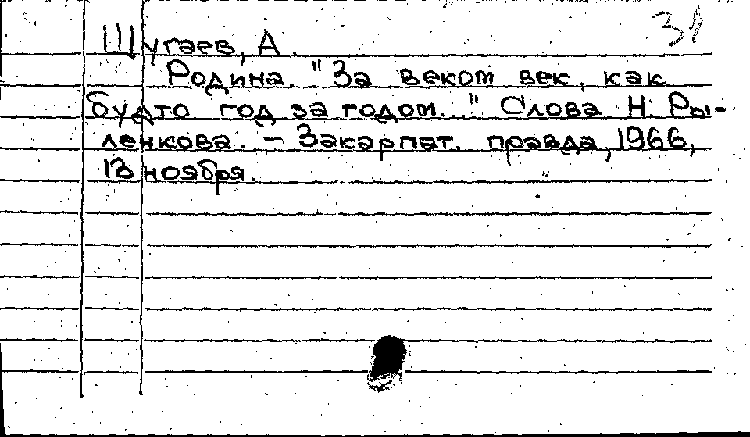 31
Шугаев, А.
Родина. "За веком век, как
будто год за годом..." Слова Н. Ры-
ленкова. — Закарпат. правда, 1966,
13 ноября.